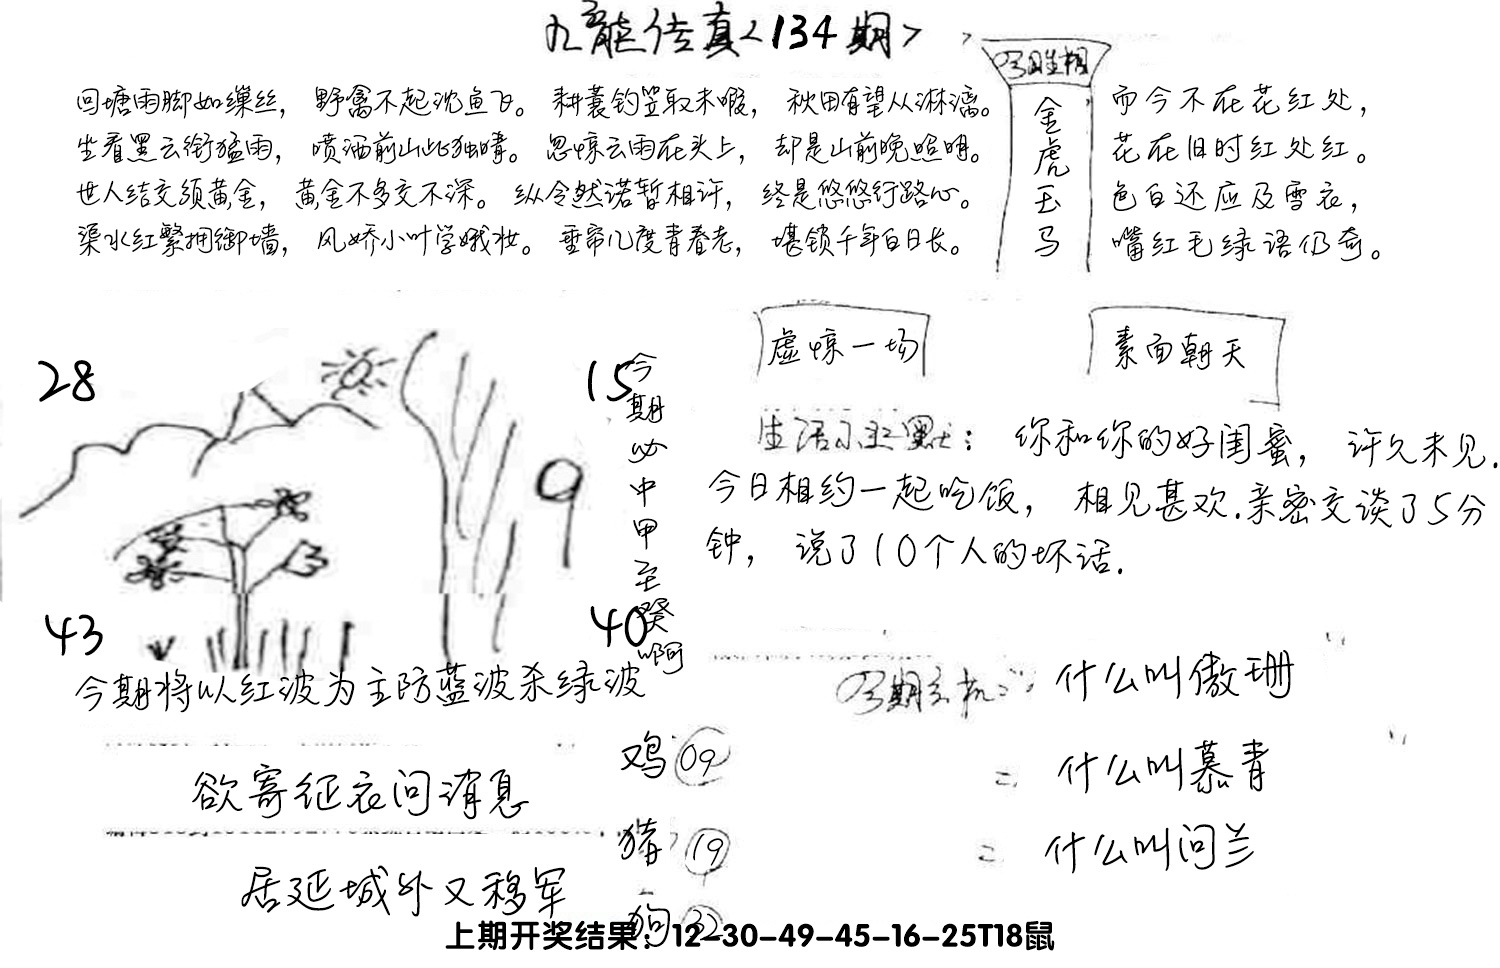 九龙传真<134期>
回塘雨脚如缫丝，野禽不起沈鱼飞。耕蓑钓笠取未暇，秋田有望从淋漓。
坐看黑云衔猛雨，喷洒前山此独晴。忽惊云雨在头上，却是山前晚照明。
世人结交须黄金，黄金不多交不深。纵令然诺暂相许，终是悠悠行路心。
渠水红繁拥御墙，风娇小叶学娥妆。垂帘几度青春老，堪锁千年白日长。
今期生相
金虎玉马
而今不在花红处，
花在旧时红处红。
色白还应及雪衣，
嘴红毛绿语仍奇。
28
15
9
43
40
今期必中甲至癸啊
虚惊一场
素面朝天
生活小幽默：你和你的好闺蜜，许久未见.
今日相约一起吃饭，相见甚欢.亲密交谈了5分
钟，说了10个人的坏话.
今期将以红波为主防蓝波杀绿波
今期玄机：什么叫傲珊
二 什么叫慕青
二 什么叫问兰
欲寄征衣问消息
居延城外又移军
鸡 09
猪 19
狗 32
上期开奖结果：12-30-49-45-16-25T18鼠